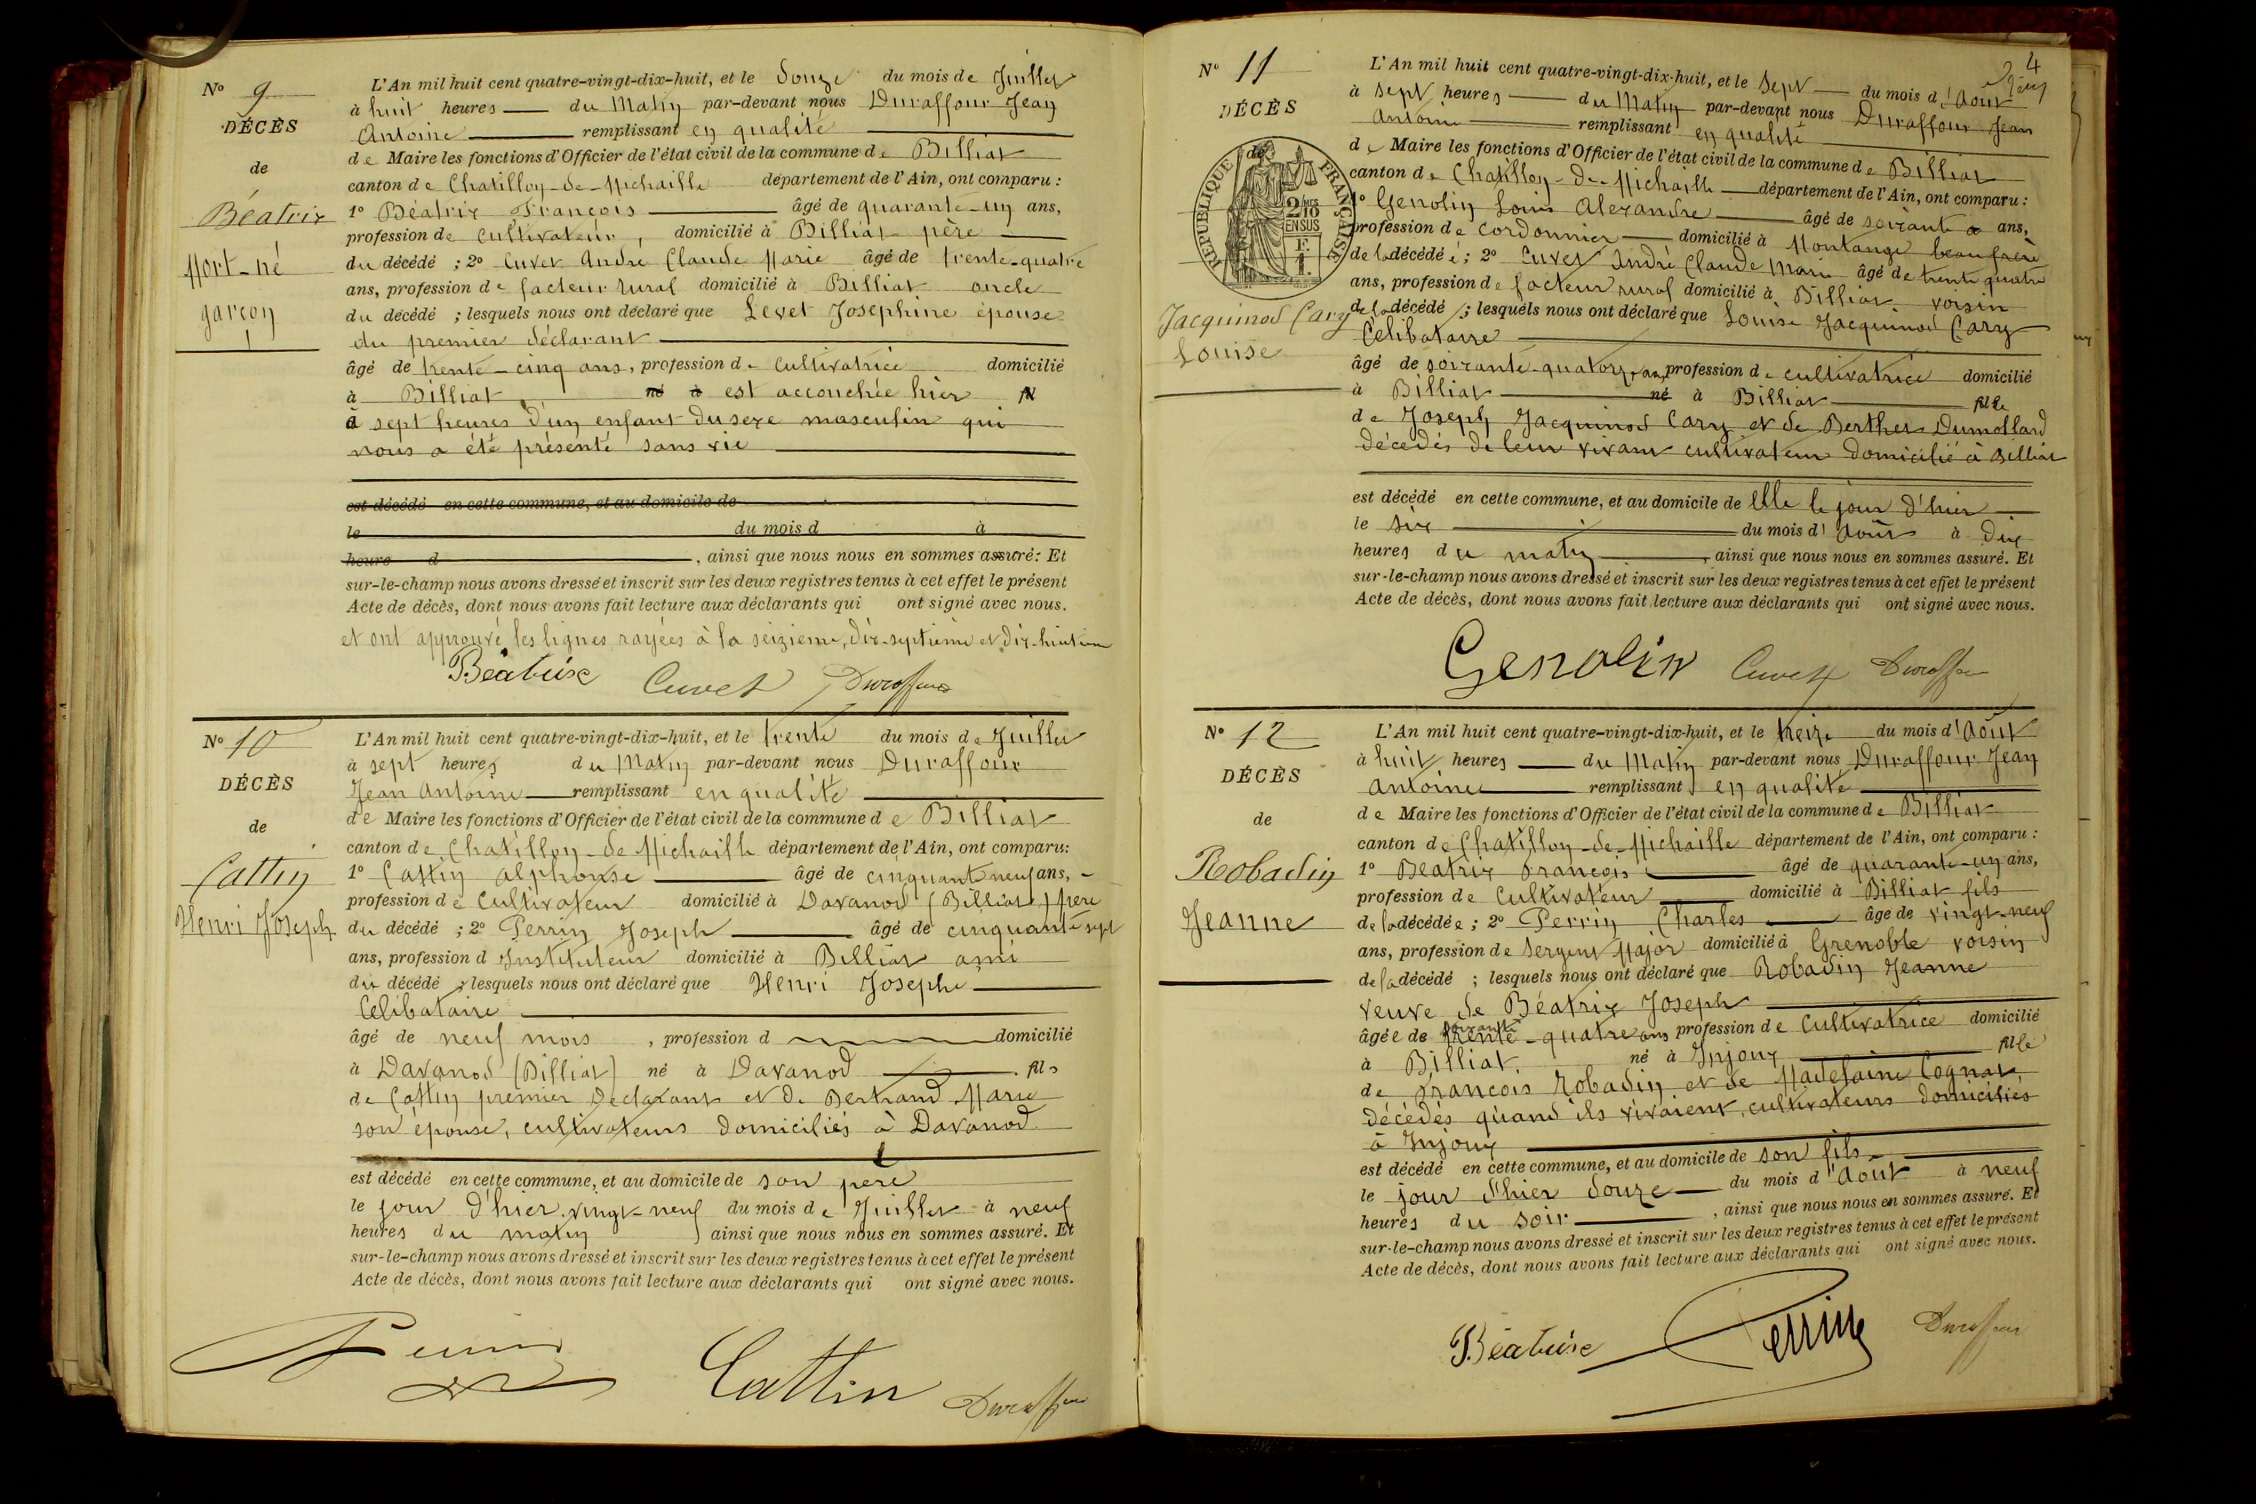 N° 9
DÉCÈS
de
Béatrix
Mort-né
garçon
L'An mil huit cent quatre-vingt-dix-huit, et le douze du mois de Juillet
à huit heures du Matin par-devant nous Duraffour Jean
Antoine remplissant en qualité
de Maire les fonctions d'Officier de l'état civil de la commune de Billiat
canton de Chatillon-de-Michaille département de l'Ain, ont comparu :
1° Béatrix François âgé de quarante-un ans,
profession de cultivateur, domicilié à Billiat père
du décédé ; 2° Cuvet André Claude Marie âgé de trente-quatre
ans, profession de facteur rural domicilié à Billiat oncle
du décédé ; lesquels nous ont déclaré que Levet Josephine épouse
du premier déclarant
âgé de trente-cinq ans, profession de cultivatrice domicilié
à Billiat né à est accouchée hier fil
à sept heures d'un enfant du sexe masculin qui
nous a été présenté sans vie
est décédé en cette commune, et au domicile de
le du mois d à
heure d , ainsi que nous nous en sommes assuré: Et
sur-le-champ nous avons dressé et inscrit sur les deux registres tenus à cet effet le présent
Acte de décès, dont nous avons fait lecture aux déclarants qui ont signé avec nous.
et ont approuvé les lignes rayées à la seizieme, dix-septieme et dix-huitieme
Béatrix Cuvet Duraffour
N° 10
DÉCÈS
de
Cattin
Henri Joseph
L'An mil huit cent quatre-vingt-dix-huit, et le trente du mois de Juillet
à sept heures du Matin par-devant nous Duraffour
Jean Antoine remplissant en qualité
de Maire les fonctions d'Officier de l'état civil de la commune de Billiat
canton de Chatillon-de-Michaille département de l'Ain, ont comparu:
1° Cattin alphonse âgé de cinquante neuf ans,
profession de cultivateur domicilié à Davanod (Billiat) père
du décédé ; 2° Perrin Joseph âgé de cinquante sept
ans, profession d Instituteur domicilié à Billiat ami
du décédé ; lesquels nous ont déclaré que Henri Joseph
Célibataire
âgé de neuf mois , profession d domicilié
à Davanod (Billiat) né à Davanod fils
de Cattin premier déclarant et de Bertrand Marie
son épouse, cultivateurs domiciliés à Davanod
est décédé en cette commune, et au domicile de son père
le jour d'hier vingt-neuf du mois de Juillet à neuf
heures du matin , ainsi que nous nous en sommes assuré. Et
sur-le-champ nous avons dressé et inscrit sur les deux registres tenus à cet effet le présent
Acte de décès, dont nous avons fait lecture aux déclarants qui ont signé avec nous.
Perrin Cattin Duraffour
4
N° 11
DÉCÈS
de
RÉPUBLIQUE FRANÇAISE
2/10 EN SUS
F. 1.
Jacquinod Cary
Louise
L'An mil huit cent quatre-vingt-dix-huit, et le Sept du mois d'Aout
à sept heures du Matin par-devant nous Duraffour Jean
Antoine remplissant en qualité
de Maire les fonctions d'Officier de l'état civil de la commune de Billiat
canton de Chatillon-de-Michaille département de l'Ain, ont comparu :
1° Genolin Louis Alexandre âgé de soixante ans,
profession de cordonnier domicilié à Montange beau frère
de la décédée ; 2° Cuvet André Claude Marie âgé de trente quatre
ans, profession de facteur rural domicilié à Billiat voisin
de la décédé ; lesquels nous ont déclaré que Louise Jacquinod Cary
Célibataire
âgé de soixante-quatorze ans, profession de cultivatrice domicilié
à Billiat né à Billiat fille
de Joseph Jacquinod Cary et de Berthet Dumollard
décédés de leur vivant cultivateur domicilié à Billiat
est décédé en cette commune, et au domicile de elle le jour d'hier
le six du mois d'Aoùt à dix
heures du matin , ainsi que nous nous en sommes assuré. Et
sur-le-champ nous avons dressé et inscrit sur les deux registres tenus à cet effet le présent
Acte de décès, dont nous avons fait lecture aux déclarants qui ont signé avec nous.
Genolin Cuvet Duraffour
N° 12
DÉCÈS
de
Robadin
Jeanne
L'An mil huit cent quatre-vingt-dix-huit, et le treize du mois d'Août
à huit heures du Matin par-devant nous Duraffour Jean
Antoine remplissant en qualité
de Maire les fonctions d'Officier de l'état civil de la commune de Billiat
canton de Chatillon-de-Michaille département de l'Ain, ont comparu :
1° Béatrix François âgé de quarante-un ans,
profession de cultivateur domicilié à Billiat fils
de la décédée ; 2° Perrin Charles âgé de vingt-neuf
ans, profession de Sergent Major domicilié à Grenoble voisin
de la décédé ; lesquels nous ont déclaré que Robadin Jeanne
veuve de Béatrix Joseph
âgée de soixante trente-quatre ans profession de cultivatrice domicilié
à Billiat né à Injoux fille
de François Robadin et de Madelaine Cognat
décédés quand ils vivaient, cultivateurs domiciliés
à Injoux
est décédé en cette commune, et au domicile de son fils
le jour d'hier douze du mois d'Aout à neuf
heures du soir , ainsi que nous nous en sommes assuré. Et
sur-le-champ nous avons dressé et inscrit sur les deux registres tenus à cet effet le présent
Acte de décès, dont nous avons fait lecture aux déclarants qui ont signé avec nous.
Béatrix Perrin Duraffour